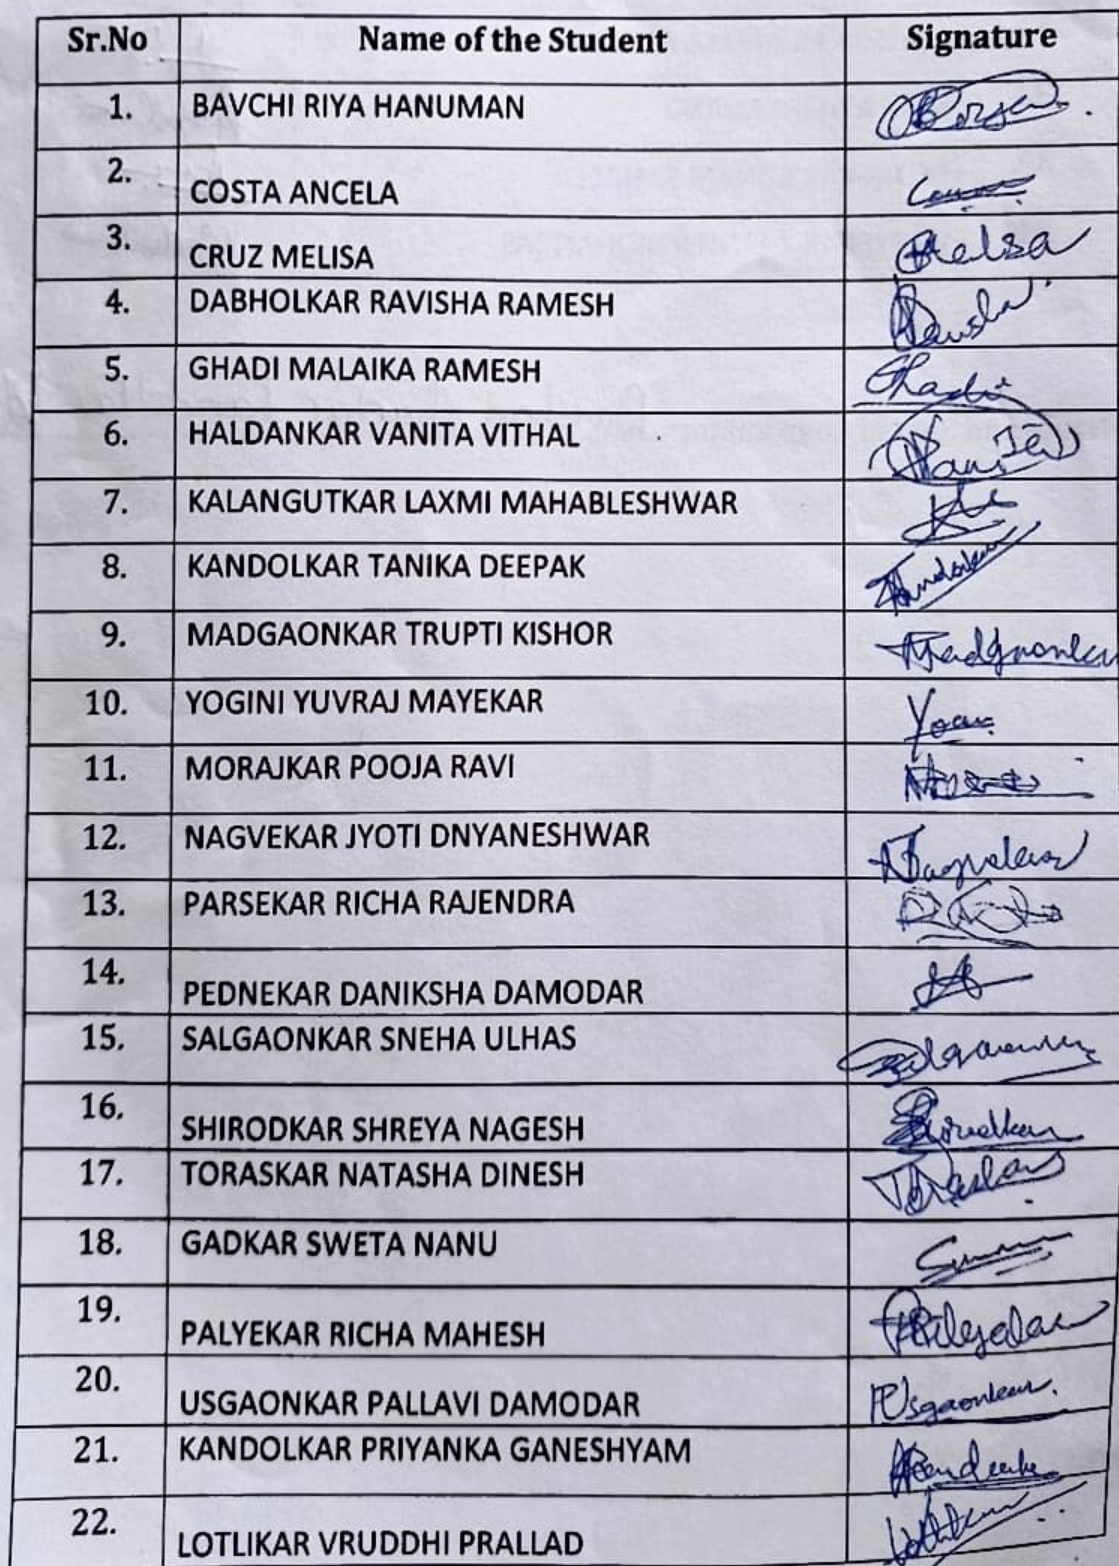 Sr.No Name of the Student Signature
1. BAVCHI RIYA HANUMAN
2. COSTA ANCELA
3. CRUZ MELISA
4. DABHOLKAR RAVISHA RAMESH
5. GHADI MALAIKA RAMESH
6. HALDANKAR VANITA VITHAL
7. KALANGUTKAR LAXMI MAHABLESHWAR
8. KANDOLKAR TANIKA DEEPAK
9. MADGAONKAR TRUPTI KISHOR
10. YOGINI YUVRAJ MAYEKAR
11. MORAJKAR POOJA RAVI
12. NAGVEKAR JYOTI DNYANESHWAR
13. PARSEKAR RICHA RAJENDRA
14. PEDNEKAR DANIKSHA DAMODAR
15. SALGAONKAR SNEHA ULHAS
16. SHIRODKAR SHREYA NAGESH
17. TORASKAR NATASHA DINESH
18. GADKAR SWETA NANU
19. PALYEKAR RICHA MAHESH
20. USGAONKAR PALLAVI DAMODAR
21. KANDOLKAR PRIYANKA GANESHYAM
22. LOTLIKAR VRUDDHI PRALLAD